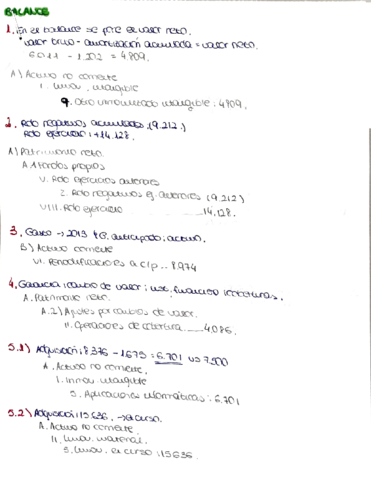 BALANCE
1. En el balance se pone el valor neto.
* valor bruto - amortización acumulada = valor neto.
6011 - 1202 = 4.809.
A) Activo no corriente
I. Inmov. intangible
9. Otro inmovilizado intangible: 4.809.
2. Rdo negativos acumulados (9.212)
Rdo ejercicio: +14.128.
A) Patrimonio neto.
A.1 Fondos propios
V. Rdo ejercicios anteriores
2. Rdo negativos ej. anteriores (9.212)
VII. Rdo ejercicio ............ 14.128.
3. Gasto -> 2013 G. anticipado: activo.
B) Activo corriente
VI. Periodificaciones a c/p .. 8.974
4. Ganancia cambio de valor: inst. financiero coberturas.
A. Patrimonio neto.
A.2) Ajustes por cambios de valor.
II. Operaciones de cobertura ...... 4.086.
5.1) Adquisición: 8.376 - 1.675 = 6.701 vs 7.500
A. Activo no corriente.
I. Inmov. intangible
5. Aplicaciones informáticas: 6.701
5.2) Adquisición: 15.636. -> en curso.
A. Activo no corriente.
II. Inmov. material.
3. Inmov. en curso: 15636.